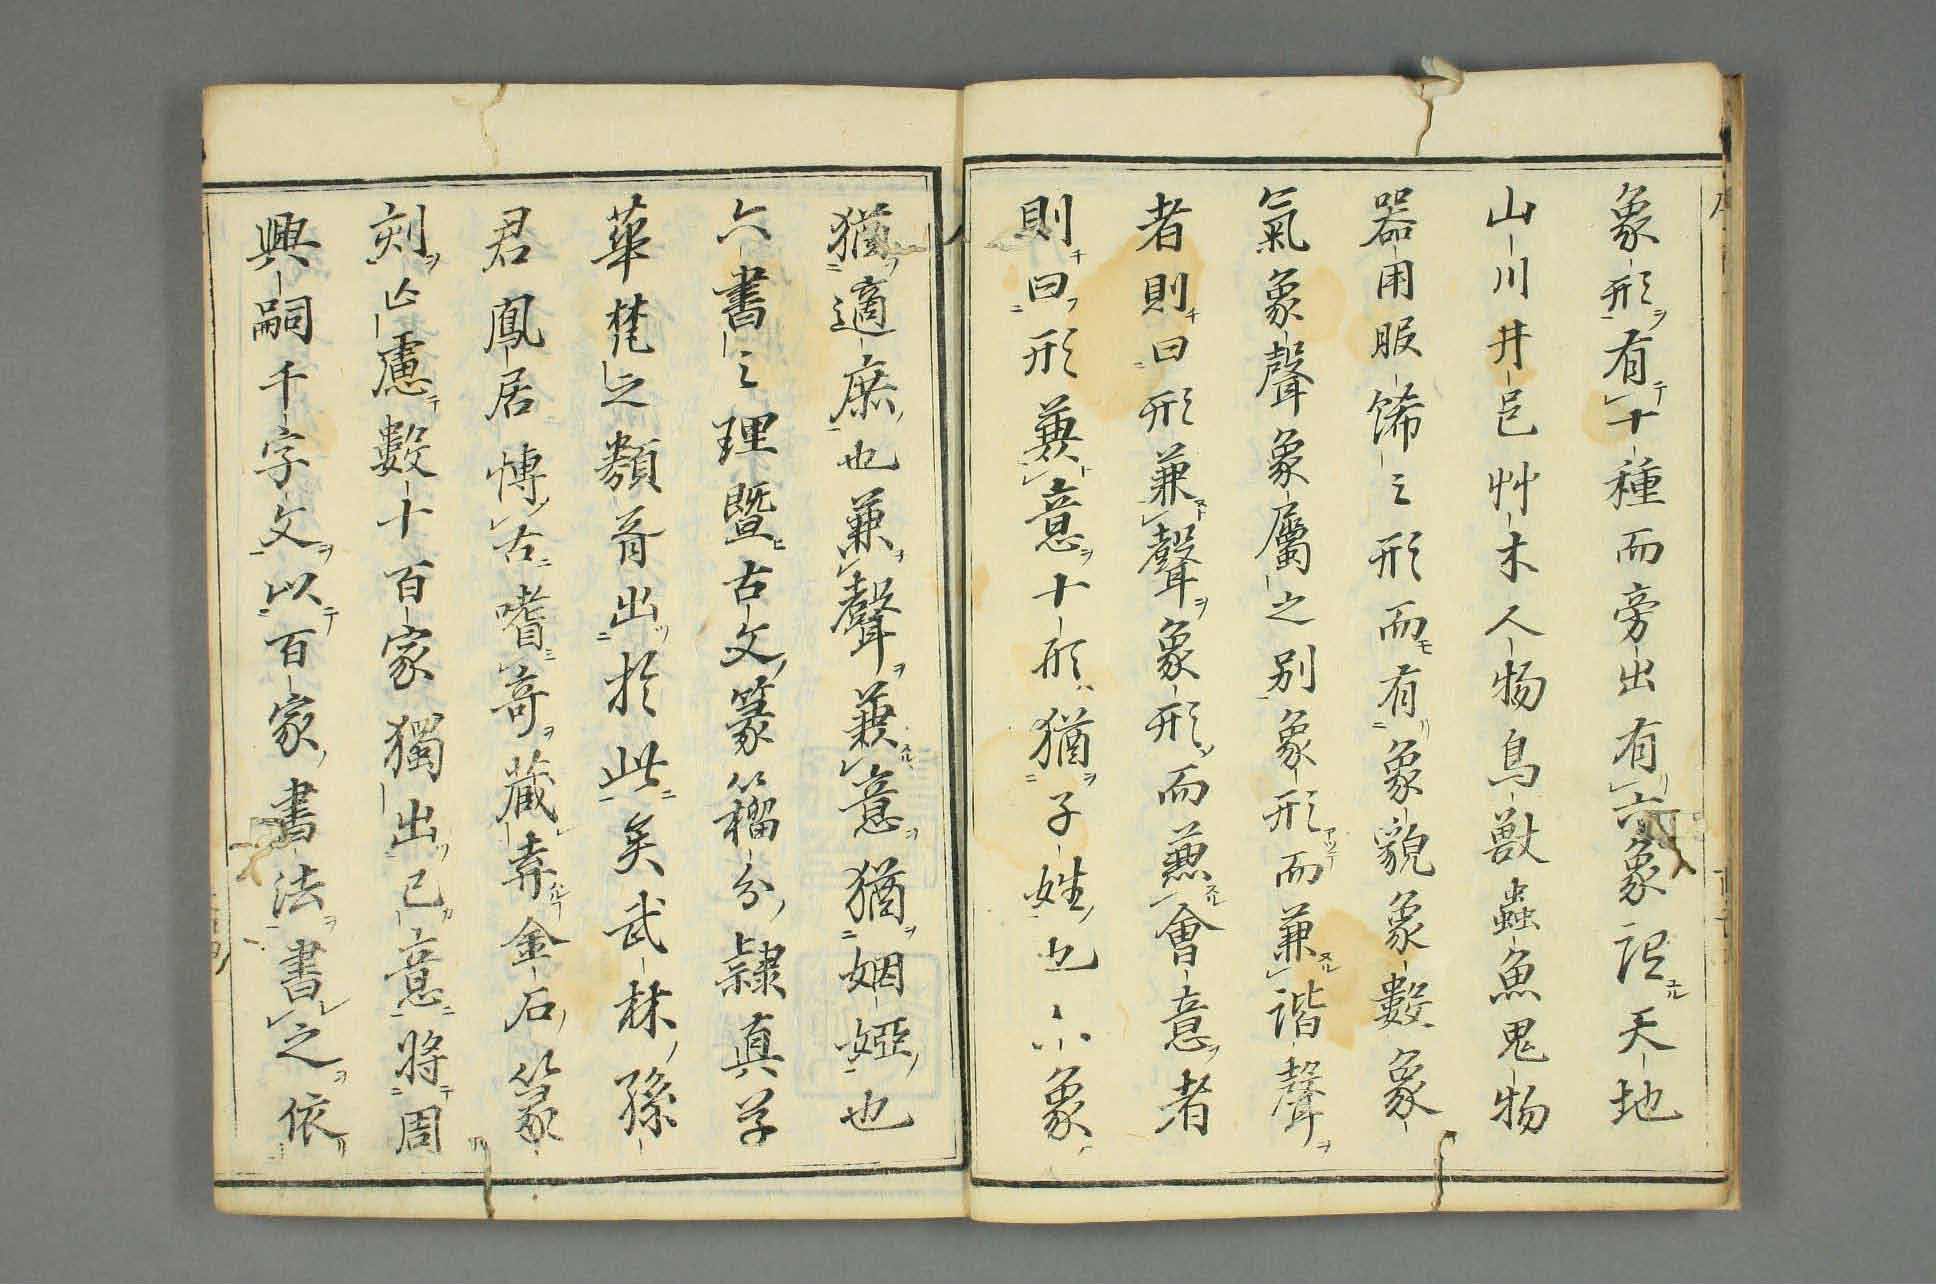 象形有十種而旁出有六象訳天地
山川井邑艸木人物鳥獣蟲魚鬼物
器用服餙之形而有象貌象數象
氣象聲象屬之別象形而兼諧聲
者則曰形兼聲象形而兼會意者
則曰形兼意十形猶子姓也六象
猶適庶也兼聲兼意猶姻婭也
六書之理曁古文篆籀分隷真草
華梵之類胥出於此矣武林孫
君鳳居慱古嗜奇藏弆金石篆
刻亾慮數十百家獨出己意將周
興嗣千字文以百家書法書之依